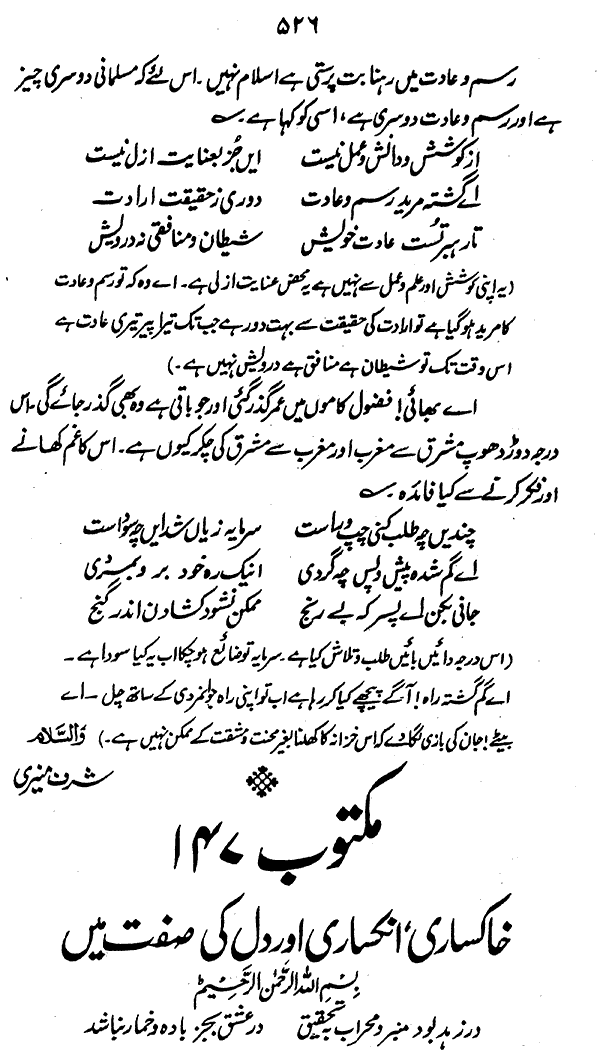 ۵۲۶
رسم و عادت میں رہنا بت پرستی ہے اسلام نہیں۔ اس لئے کہ مسلمانی دوسری چیز
ہے اور رسم و عادت دوسری ہے، اسی کو کہا ہے ؎
از کوشش و دانش و عمل نیست این جُز بعنایت ازل نیست
اے گشتہ مرید رسم و عادت دوری ز حقیقت ارادت
تا رہبر تُست عادت خویش شیطان و منافقی نہ درویش
(یہ اپنی کوشش اور علم و عمل سے نہیں ہے یہ محض عنایت ازلی ہے۔ اے وہ کہ تو رسم و عادت
کا مرید ہو گیا ہے تو ارادت کی حقیقت سے بہت دور ہے جب تک تیرا پیر تیری عادت ہے
اس وقت تک تو شیطان ہے منافق ہے درویش نہیں ہے۔)
اے بھائی! فضول کاموں میں عمر گذر گئی اور جو باقی ہے وہ بھی گذر جائے گی۔ اس
درجہ دوڑ دھوپ مشرق سے مغرب اور مغرب سے مشرق کی چکر کیوں ہے۔ اس کا غم کھانے
اور فکر کرنے سے کیا فائدہ ؎
چندیں چہ طلب کنی چپ و راست سرمایہ زیاں شد ایں چہ سوداست
اے گم شدہ پیش و پس چہ گردی اینک رہ خود بر و بمردی
جانی بکن اے پسر کہ بے رنج ممکن نشود کشادن اندر گنج
(اس درجہ دائیں بائیں طلب و تلاش کیا ہے۔ سرمایہ تو ضائع ہو چکا اب یہ کیا سودا ہے۔
اے گم گشتہ راہ! آگے پیچھے کیا کر رہا ہے اب تو اپنی راہ جوانمردی کے ساتھ چل۔ اے
بیٹے! جان کی بازی لگا دے کہ اس خزانہ کا کھلنا بغیر محنت و مشقت کے ممکن نہیں ہے۔) والسّلام
شرف منیری
مکتوب ۱۴۷
خاکساری، انکساری اور دل کی صفت میں
بِسْمِ اللهِ الرَّحْمٰنِ الرَّحِيْمِ
در زہد بود منبر و محراب بہ تحقیق در عشق بجز بادہ و خمار نباشد